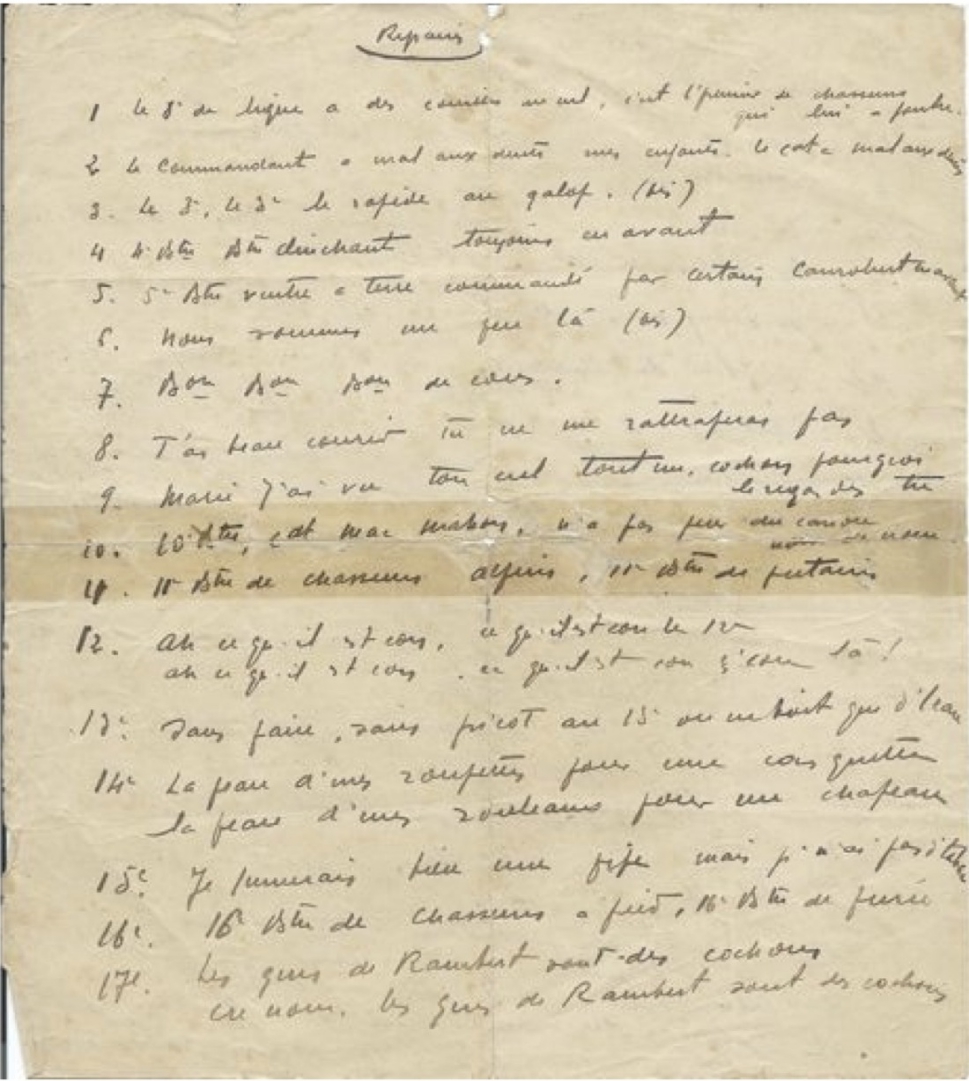 Refrains
1 Le 8e de ligne a des au cul, c'est l' de chasseurs
qui lui a foutre.
2 Le Commandant a mal aux dents mes enfants. Le cdt a mal aux dents
3. Le 3e, le 3e le rapide au galop. (bis)
4 4e Btn Btn toujours en avant
5. 5e Btn ventre a terre commandé par certains Canrobert
6. Nous sommes un peu là (bis)
7. Bon Bon Bon de
8. T'as beau courir tu ne me rattraperas pas
9. Marie j'ai vu ton cul tout nu, cochon pourquoi
le regardes tu
10. 10e Btn, cdt Mac Mahon, n'a pas peur du canon
nom de nom.
11. 11e Btn de chasseurs alpins, 11e Btn de putains
12. Ah ce qu'il est con, ce qu'il est con le 12e
ah ce qu'il est con, ce qu'il est con c'con là!
13e. Sans , sans au 13e on ne boit que d'l'eau
14e La peau d'mes roupettes pour une casquette
la peau d'mes rouleaux pour un chapeau
15e. Je fumerais bien une pipe mais j'n'ai pas d'tabac
16e. 16e Btn de chasseurs a pied, 16e Btn de
17e. Les gens de Rambert sont des cochons
cré nom. les gens de Rambert sont des cochons